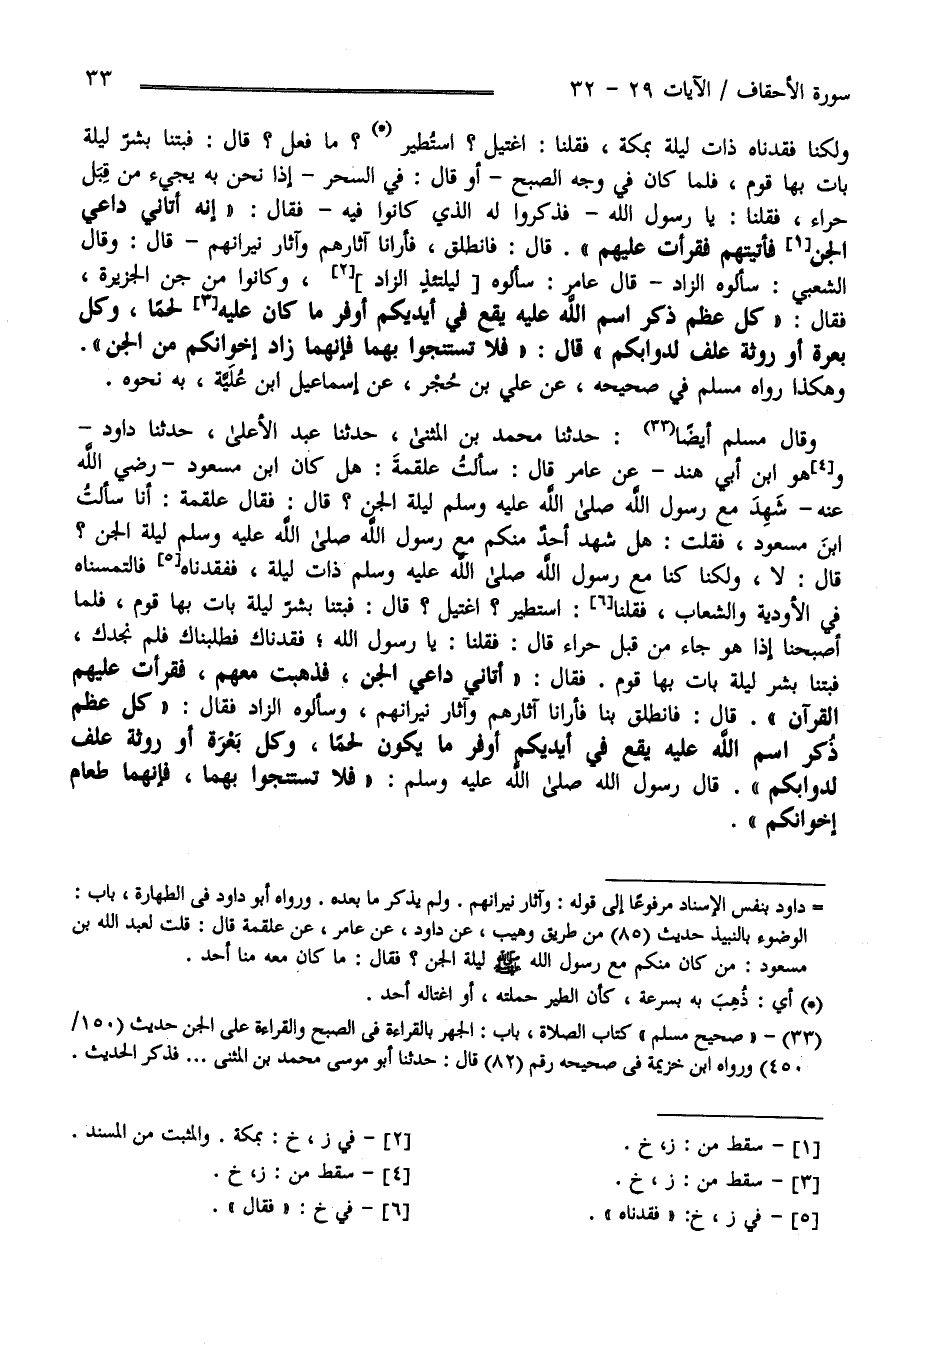 سورة الأحقاف / الآيات ٢٩ - ٣٢
٣٣
ولكنا فقدناه ذات ليلة بمكة ، فقلنا : اغتيل ؟ استُطير (*) ؟ ما فعل ؟ قال : فبتنا بشرّ ليلة
بات بها قوم ، فلما كان في وجه الصبح - أو قال : في السحر - إذا نحن به يجيء من قِبَل
حراء ، فقلنا : يا رسول الله - فذكروا له الذي كانوا فيه - فقال : « إنه أتاني داعي
الجن[١] فأتيتهم فقرأت عليهم » . قال : فانطلق ، فأرانا آثارهم وآثار نيرانهم - قال : وقال
الشعبي : سألوه الزاد - قال عامر : سألوه [ ليلتئذٍ الزاد ][٢] ، وكانوا من جن الجزيرة ،
فقال : « كل عظم ذكر اسم اللَّه عليه يقع في أيديكم أوفر ما كان عليه[٣] لحمًا ، وكل
بعرة أو روثة علف لدوابكم » قال : « فلا تستنجوا بهما فإنهما زاد إخوانكم من الجن» .
وهكذا رواه مسلم في صحيحه ، عن علي بن حُجْر ، عن إسماعيل ابن عُلَيَّة ، به نحوه .
وقال مسلم أيضًا(٣٣) : حدثنا محمد بن المثنىٰ ، حدثنا عبد الأعلىٰ ، حدثنا داود -
و[٤]هو ابن أبي هند - عن عامر قال : سألتُ علقمةَ : هل كان ابن مسعود - رضي اللَّه
عنه - شَهِدَ مع رسول اللَّه صلىٰ اللَّه عليه وسلم ليلة الجن ؟ قال : فقال علقمة : أنا سألتُ
ابنَ مسعود ، فقلت : هل شهد أحدٌ منكم مع رسول اللَّه صلىٰ اللَّه عليه وسلم ليلة الجن ؟
قال : لا ، ولكنا كنا مع رسول اللَّه صلىٰ اللَّه عليه وسلم ذات ليلة ، ففقدناه[٥] فالتمسناه
في الأودية والشعاب ، فقلنا[٦] : استطير ؟ اغتيل ؟ قال : فبتنا بشرّ ليلة بات بها قوم ، فلما
أصبحنا إذا هو جاء من قبل حراء قال : فقلنا : يا رسول الله ؛ فقدناك فطلبناك فلم نجدك ،
فبتنا بشر ليلة بات بها قوم . فقال : « أتاني داعي الجن ، فذهبت معهم ، فقرأت عليهم
القرآن » . قال : فانطلق بنا فأرانا آثارهم وآثار نيرانهم ، وسألوه الزاد فقال : « كل عظم
ذُكر اسم اللَّه عليه يقع في أيديكم أوفر ما يكون لحمًا ، وكل بَعْرَة أو روثة علف
لدوابكم » . قال رسول الله صلىٰ اللَّه عليه وسلم : « فلا تستنجوا بهما ، فإنهما طعام
إخوانكم » .
= داود بنفس الإسناد مرفوعًا إلى قوله : وآثار نيرانهم . ولم يذكر ما بعده . ورواه أبو داود فى الطهارة ، باب :
الوضوء بالنبيذ حديث (٨٥) من طريق وهيب ، عن داود ، عن عامر ، عن علقمة قال : قلت لعبد الله بن
مسعود : من كان منكم مع رسول الله ﷺ ليلة الجن ؟ فقال : ما كان معه منا أحد .
(*) أي : ذُهِبَ به بسرعة ، كأن الطير حملته ، أو اغتاله أحد .
(٣٣) - « صحيح مسلم » كتاب الصلاة ، باب : الجهر بالقراءة فى الصبح والقراءة على الجن حديث (١٥٠/
٤٥٠) ورواه ابن خزيمة فى صحيحه رقم (٨٢) قال : حدثنا أبو موسى محمد بن المثنى ... فذكر الحديث .
[١] - سقط من : ز، خ .
[٢] - في ز ، خ : بمكة . والمثبت من المسند .
[٣] - سقط من : ز ، خ .
[٤] - سقط من : ز، خ .
[٥] - في ز ، خ: « فقدناه » .
[٦] - في خ : « فقال » .